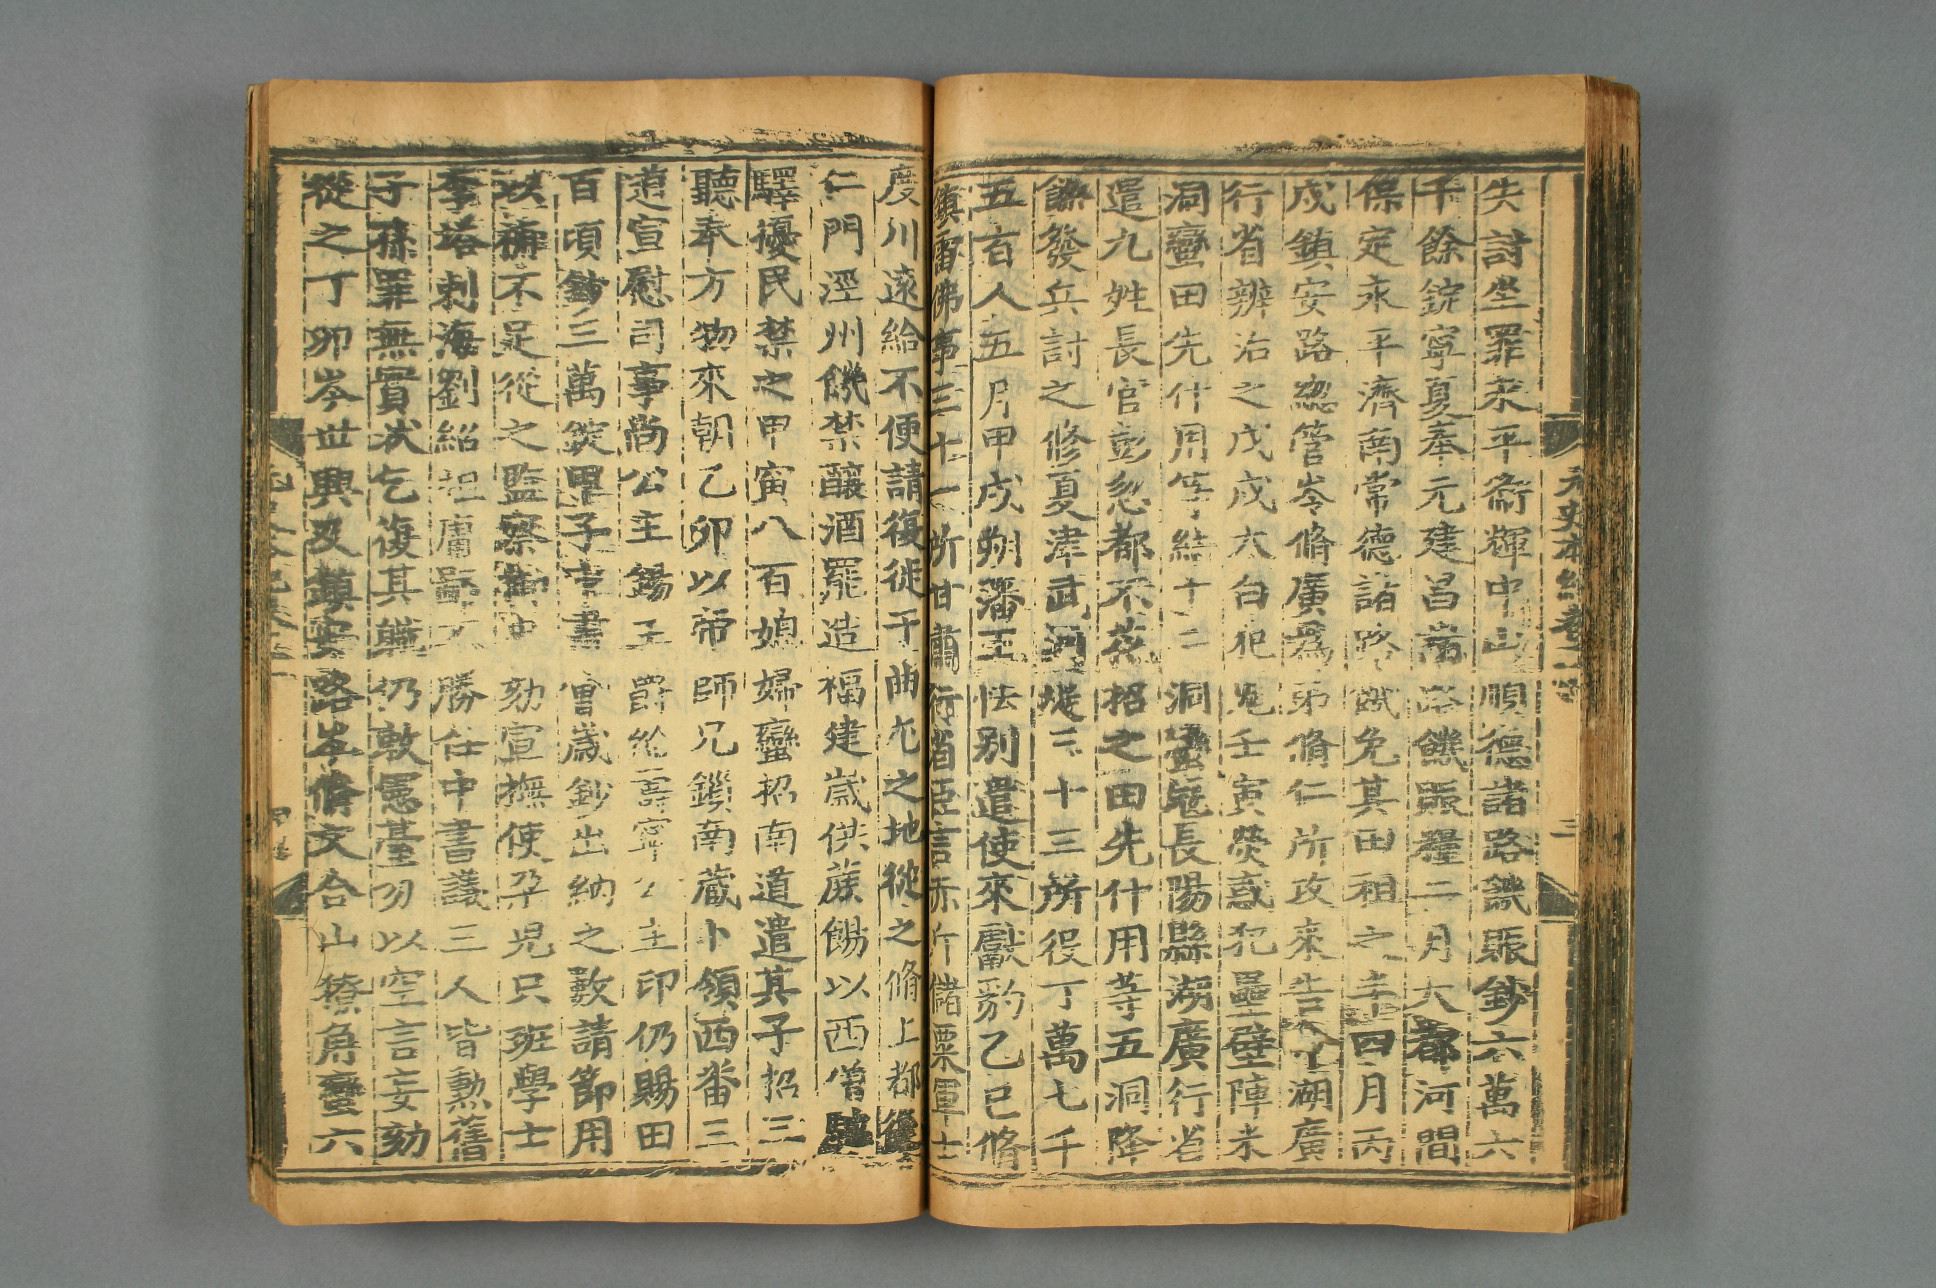 元史本紀卷二
三
失討坐罪永平衞輝中山順德諸路饑賑鈔六萬六
千餘錠寧夏奉元建昌諸路饑賑糧二月大都河間
保定永平濟南常德諸路饑免其田租之半四月丙
戌鎮安路總管岑脩廣爲弟脩仁所攻來告命湖廣
行省辨治之戊戌太白犯鬼壬寅熒惑犯壘壁陣未
洞蠻田先什用等結十二洞蠻冦長陽縣湖廣行省
遣九姓長官彭忽都不花招之田先什用等五洞降
餘發兵討之修夏津武河堤三十三所役丁萬七千
五百人五月甲戌朔潘王怯别遣使來獻豹乙巳脩
鎮雷佛事三十一所甘肅行省臣言赤斤儲粟軍士
度川遠給不便請復徙于曲尤之地從之脩上都復
仁門涇州饑禁釀酒罷造福建歲供蔗餳以西僧馳
驛擾民禁之甲寅八百媳婦蠻招南道遣其子招三
聽奉方物來朝乙卯以帝師兄鎻南藏卜領西番三
道宣慰司事尚公主錫王爵給壽寧公主印仍賜田
百頃鈔三萬錠甲子中書會歲鈔出納之數請節用
以補不足從之監察御史劾宣撫使朶兒只班學士
李塔剌海劉紹祖庸鄙不勝任中書議三人皆勲舊
子孫罪無實狀乞復其職仍敕憲臺勿以空言妄劾
從之丁卯岑世興及鎮安路岑脩文合山獠角蠻六